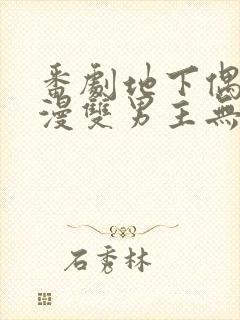 番劇地下偶
漫雙男主無
石秀林